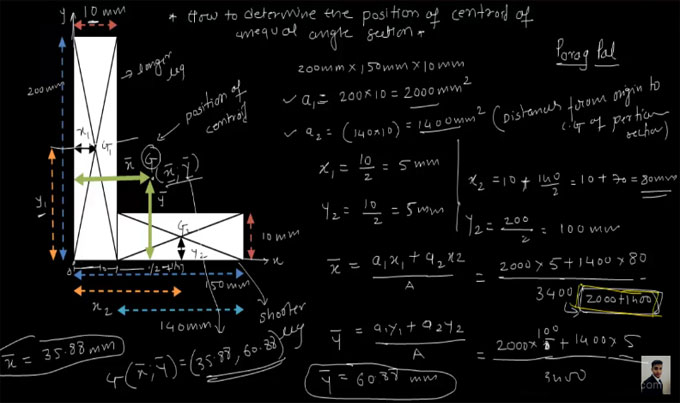 * How to determine the position of centroid of
unequal angle section *
Porag Pal
10 mm
y
longer
leg
200mm
position of
centroid
x1
G1
G
x̄
(x̄, ȳ)
ȳ
y1
G2
y2
10 mm
x
150mm
x2
140mm
shooter
leg
200mm x 150mm x 10mm
✓ a1 = 200x10 = 2000mm²
✓ a2 = (140x10) = 1400mm²
(Distances from origin to
C.G of portion
section)
x1 = 10/2 = 5 mm
Y2 = 10/2 = 5mm
x2 = 10 + 140/2 = 10 + 70 = 80mm
Y2 = 200/2 = 100 mm
x̄ = a1x1 + a2x2 / A = 2000 x 5 + 1400 x 80 / 3400
2000+1400
ȳ = a1y1 + a2y2 / A = 2000 x 100 + 1400 x 5 / 3400
x̄ = 35.88 mm
G(x̄, ȳ) = (35.88, 60.88)
ȳ = 60.88 mm
.com